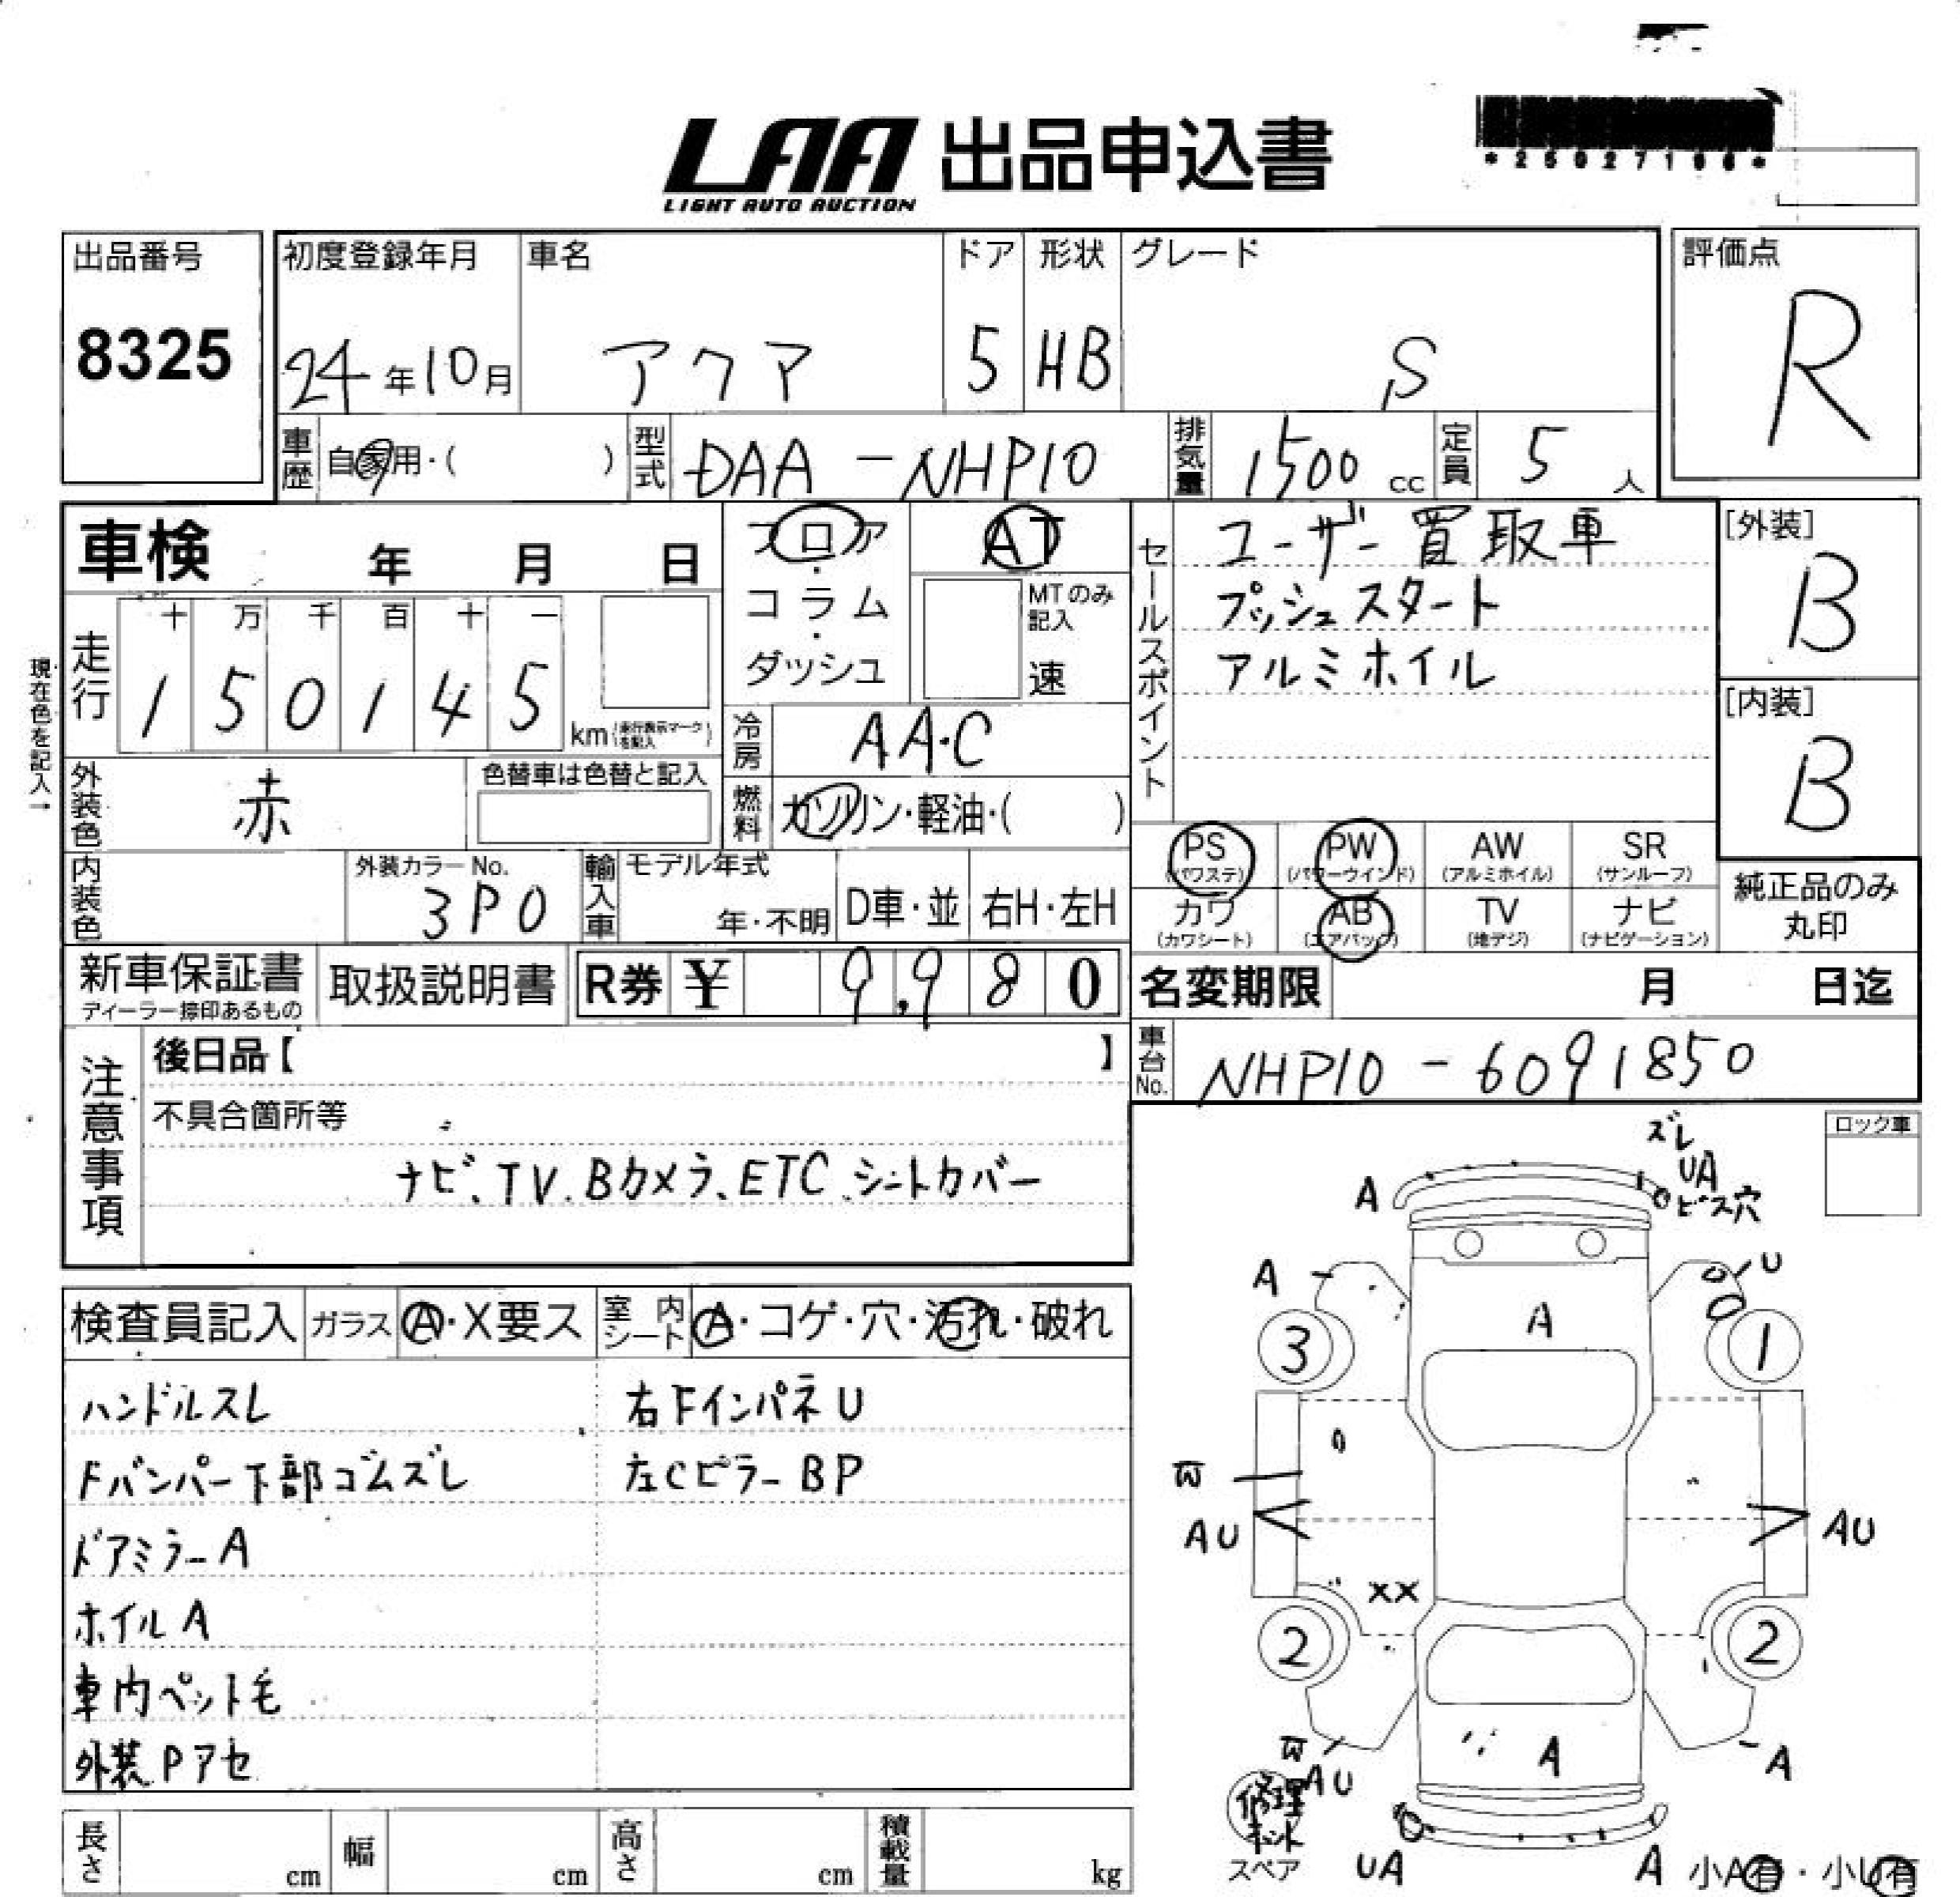 *25027106*
LAA 出品申込書
LIGHT AUTO AUCTION
出品番号
8325
初度登録年月
24年10月
車名
アクア
ドア
5
形状
HB
グレード
S
評価点
R
車歴 自家用・( )
型式 DAA-NHP10
排気量 1500 cc
定員 5 人
車検 年 月 日
フロア・コラム・ダッシュ
AT
MTのみ記入
速
セールスポイント
ユーザー買取車
プッシュスタート
アルミホイル
[外装]
B
[内装]
B
現在色を記入→
走行
十 万 千 百 十 一
1 5 0 1 4 5
km(走行表示マークを記入)
冷房 AA・C
燃料 ガソリン・軽油・( )
外装色 赤
色替車は色替と記入
内装色
外装カラーNo.
3P0
輸入車
モデル年式
年・不明
D車・並
右H・左H
PS (パワステ)
PW (パワーウインド)
AW (アルミホイル)
SR (サンルーフ)
カワ (カワシート)
AB (エアバック)
TV (地デジ)
ナビ (ナビゲーション)
純正品のみ丸印
新車保証書
ディーラー捺印あるもの
取扱説明書
R券 ¥ 9,980
名変期限 月 日迄
車台No. NHP10-6091850
注意事項
後日品【 】
不具合箇所等
ナビ、TV、Bカメラ、ETC、シートカバー
ロック車
検査員記入
ガラス A・X要ス
室内シート A・コゲ・穴・汚れ・破れ
ハンドルスレ
右FインパネU
Fバンパー下部ゴムズレ
左CピラーBP
ドアミラーA
ホイルA
車内ペット毛
外装Pアセ
ズレ
UA
ビス穴
A
A
U
A
3
1
W
AU
AU
XX
2
2
W
AU
A
A
修理キット
スペア
UA
A
小A有・小U有
長さ cm
幅 cm
高さ cm
積載量 kg